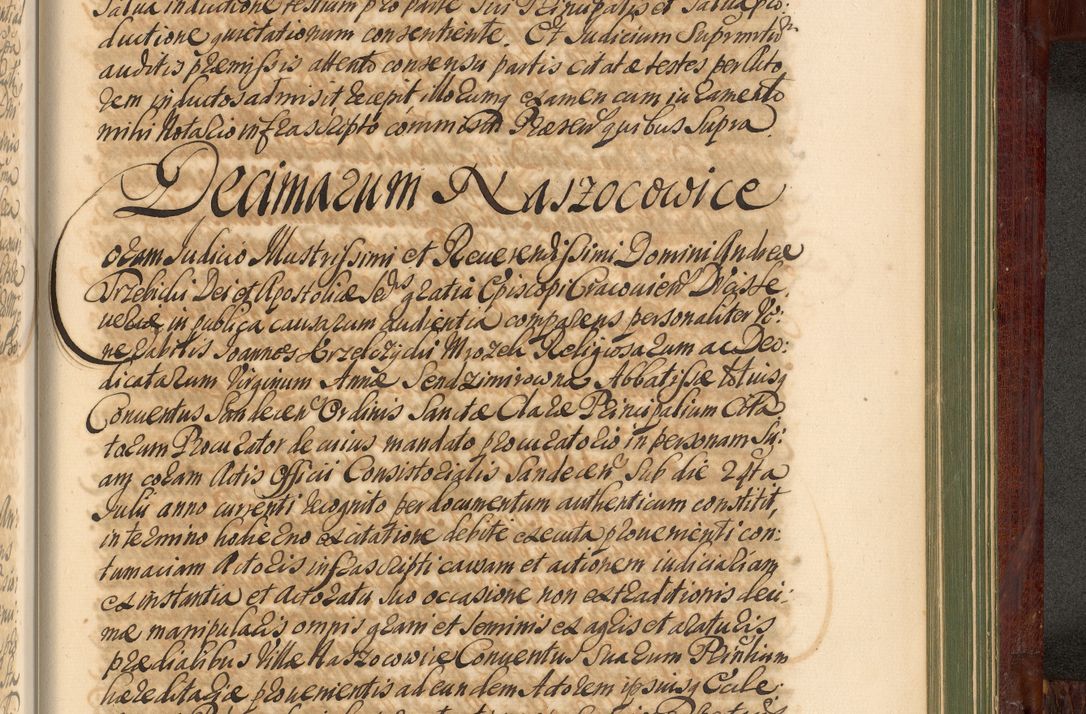 Salva inductione testium pro parte sui Principalis et Salva pro:
ductione quietationum consentiente. Et Judicium Supremitio
auditis præmissis attento consensu partis citatæ testes per Acto
rem inductos admisit recepit illorumq examen cum iuramento
mihi Notario infrascripto commisit Præsen quibus Supra
Decimarum Naszocowice
Coram Judicio Illustrissimi et Reuerendissimi Domini Andreæ
Trzebicki Dei et Apostolicæ Sedis gratia Episcopi Cracovien Ducis Se
veriæ in publica causarum audientia comparens personaliter Ve:
nerabilis Joannes Krzelczycki Mrozek Religiosarum ac Deo:
dicatarum Virginum Annæ Sendzimirowna Abbatissæ totiusq
Conventus Sandecen Ordinis Sanctæ Claræ Principalium Cita
torum Procurator de cuius mandato procuratorio in personam Su:
am coram Actis Officii Consistorialis Sandecen Sub die 24ta
Julii anno currenti recognito per documentum authenticum constitit,
in termino hodierno ex citatione debite executa provenienti con:
tumaciam Actoris infrascripti causam et actionem iudicialiam
ex instantia et Actoratu suo occasione non extraditionis deci:
mæ manipularis omnis grani et seminis ex agris et araturis
prædialibus Villæ Naszocowice Conventus Suarum Prinlium
hæreditariæ provenientis ad eundem Actorem ipsiusq Eccle: